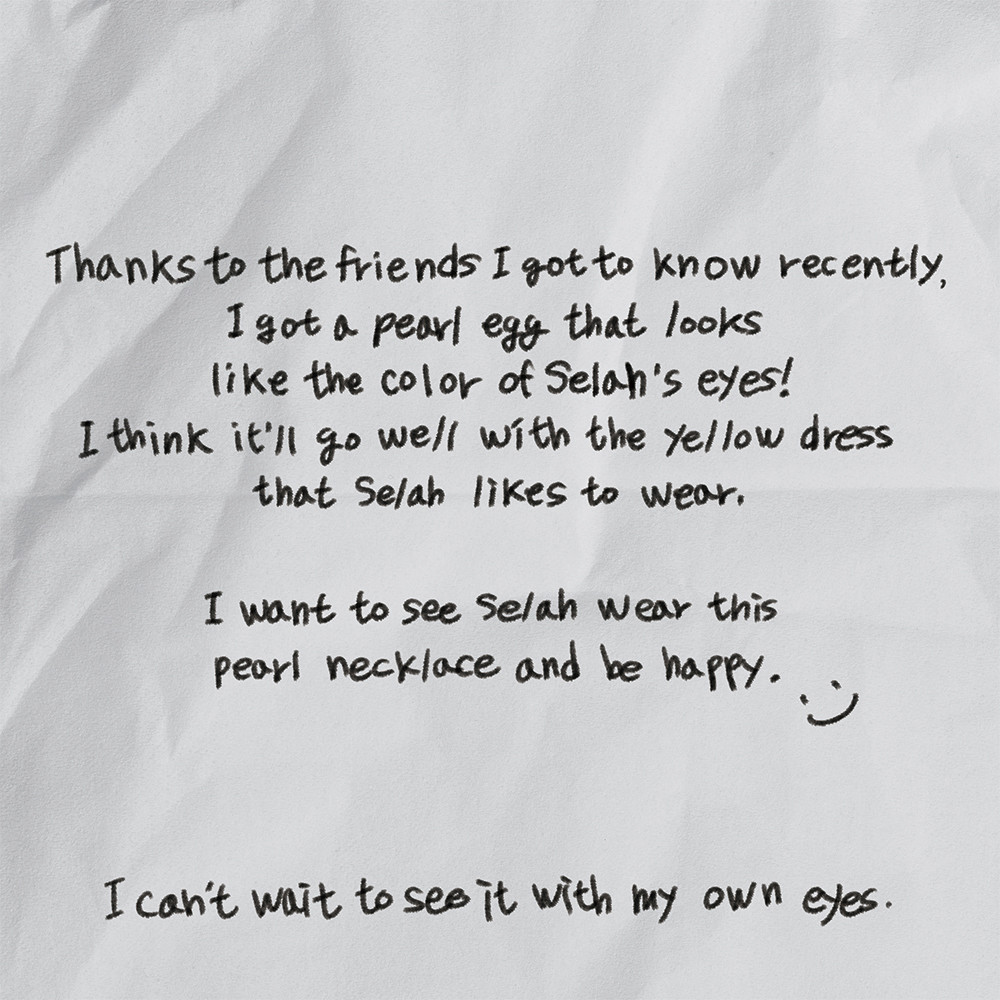 Thanks to the friends I got to know recently,
I got a pearl egg that looks
like the color of Selah's eyes!
I think it'll go well with the yellow dress
that Selah likes to wear.
I want to see Selah wear this
pearl necklace and be happy. :)
I can't wait to see it with my own eyes.